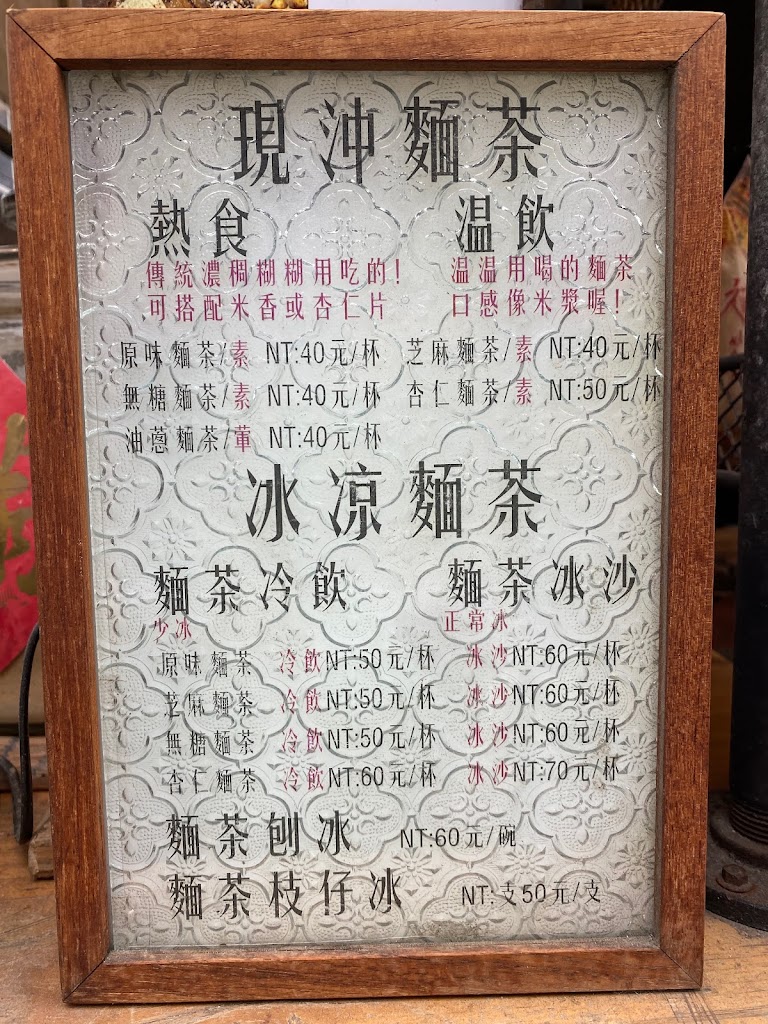 現沖麵茶
熱食 温飲
傳統濃稠糊糊用吃的! 温温用喝的麵茶
可搭配米香或杏仁片 口感像米漿喔!
原味麵茶/素 NT:40元/杯 芝麻麵茶/素 NT:40元/杯
無糖麵茶/素 NT:40元/杯 杏仁麵茶/素 NT:50元/杯
油蔥麵茶/葷 NT:40元/杯
冰凉麵茶
麵茶冷飲 麵茶冰沙
少冰 正常冰
原味麵茶 冷飲NT:50元/杯 冰沙NT:60元/杯
芝麻麵茶 冷飲NT:50元/杯 冰沙NT:60元/杯
無糖麵茶 冷飲NT:50元/杯 冰沙NT:60元/杯
杏仁麵茶 冷飲NT:60元/杯 冰沙NT:70元/杯
麵茶刨冰 NT:60元/碗
麵茶枝仔冰 NT:支50元/支